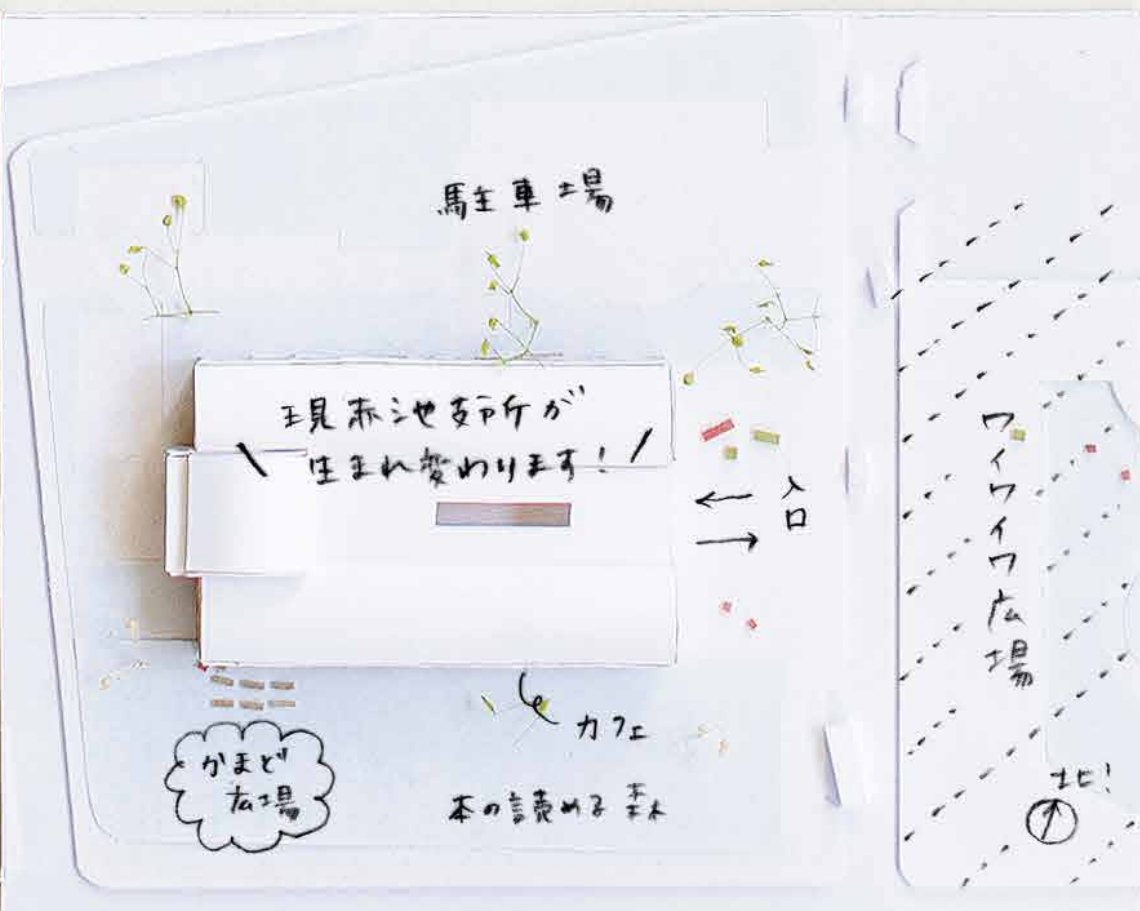 駐車場
現赤池支所が
生まれ変わります!
入口
ワイワイ広場
カフェ
かまど
広場
本の読める森
北!